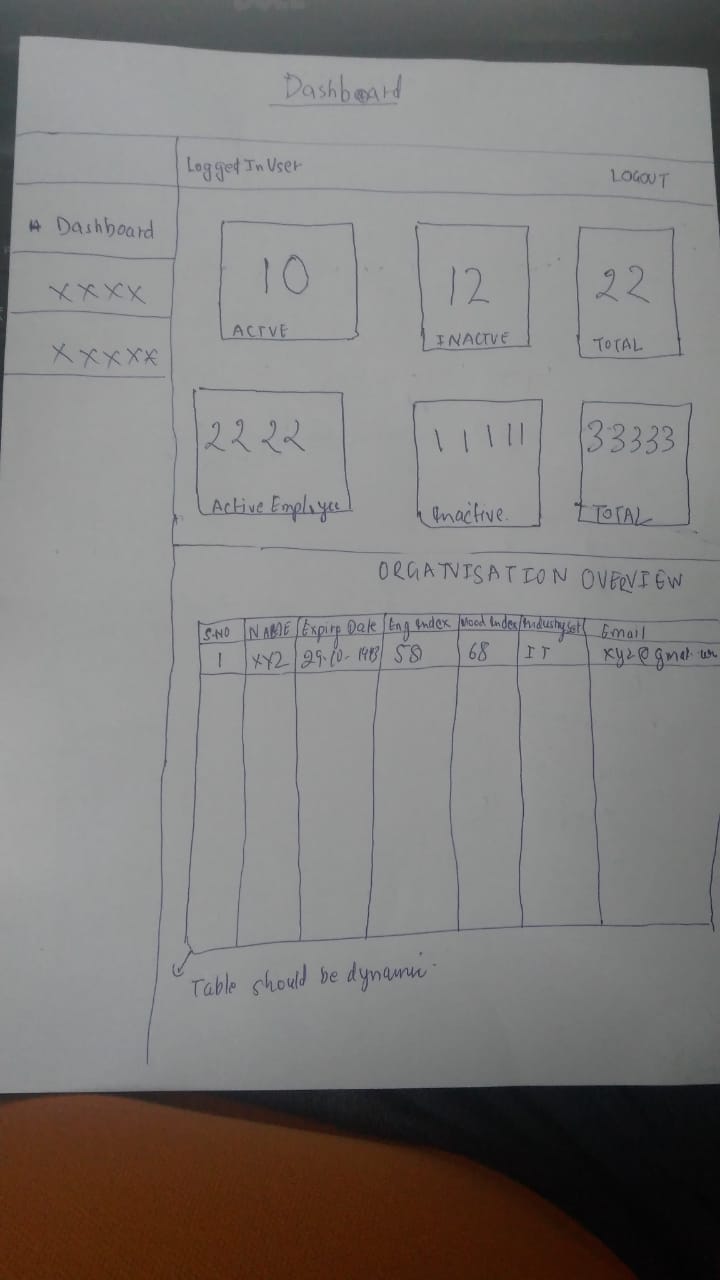 Dashboard
Logged In User
LOGOUT
Dashboard
XXXX
XXXXX
10
ACTVE
12
INACTVE
22
TOTAL
2222
Active Employee
11111
Inactive.
33333
TOTAL
ORGANISATION OVERVIEW
S.NO NAME Expiry Date Eng index Mood Index Industry Email
1 XYZ 58 68 IT
Table should be dynamic.